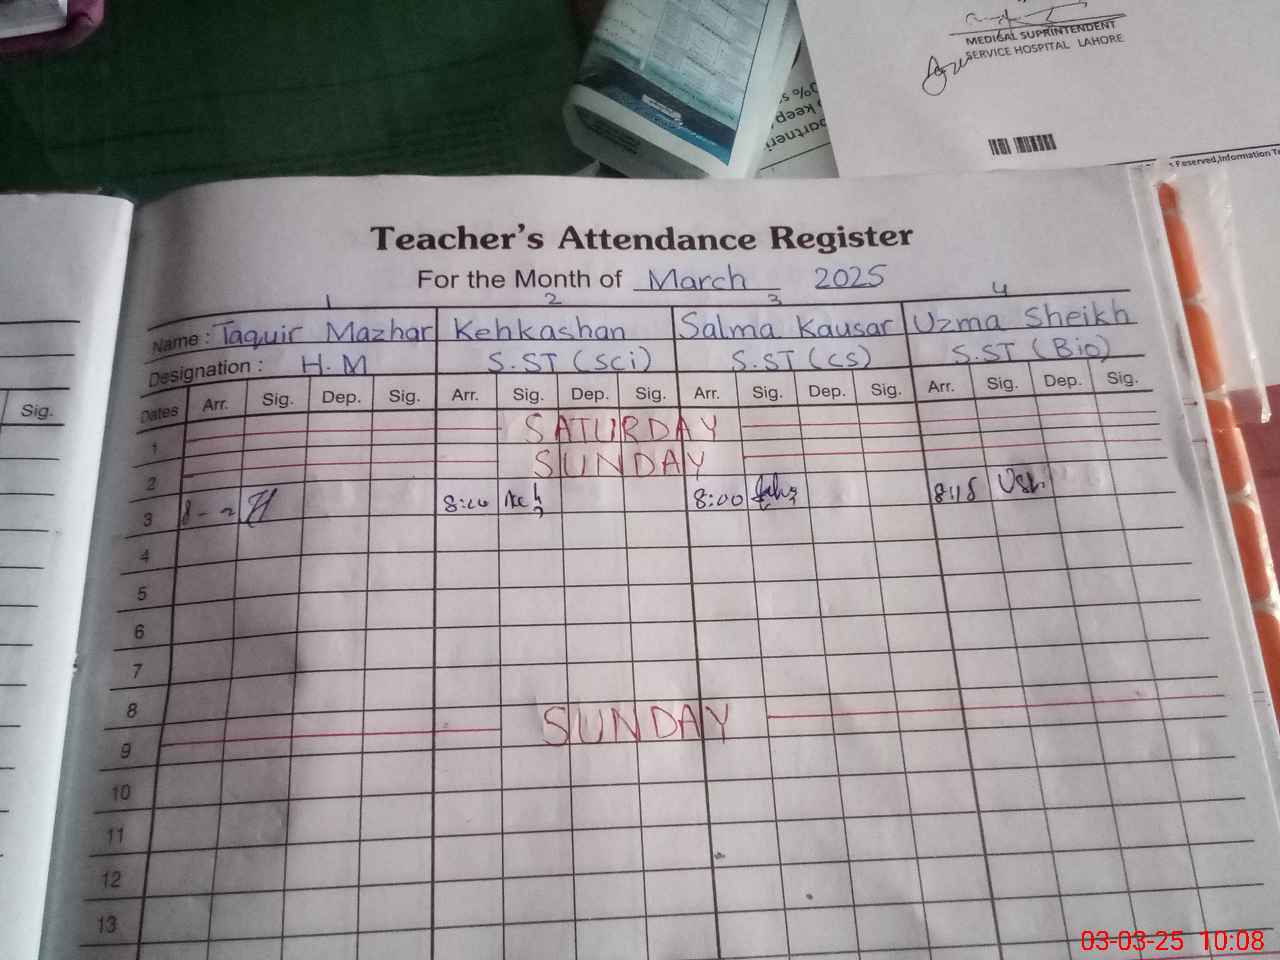 MEDICAL SUPRINTENDENT
SERVICE HOSPITAL LAHORE
Reserved,Information
Teacher's Attendance Register
For the Month of March 2025
1 2 3 4
Name : Taquir Mazhar Kehkashan Salma Kausar Uzma Sheikh
Designation : H.M S.ST (Sci) S.ST (CS) S.ST (Bio)
Sig. Dates Arr. Sig. Dep. Sig. Arr. Sig. Dep. Sig. Arr. Sig. Dep. Sig. Arr. Sig. Dep. Sig.
1 SATURDAY
2 SUNDAY
3 8:00 8:00
4
5
6
7
8
9 SUNDAY
10
11
12
13
03-03-25 10:08